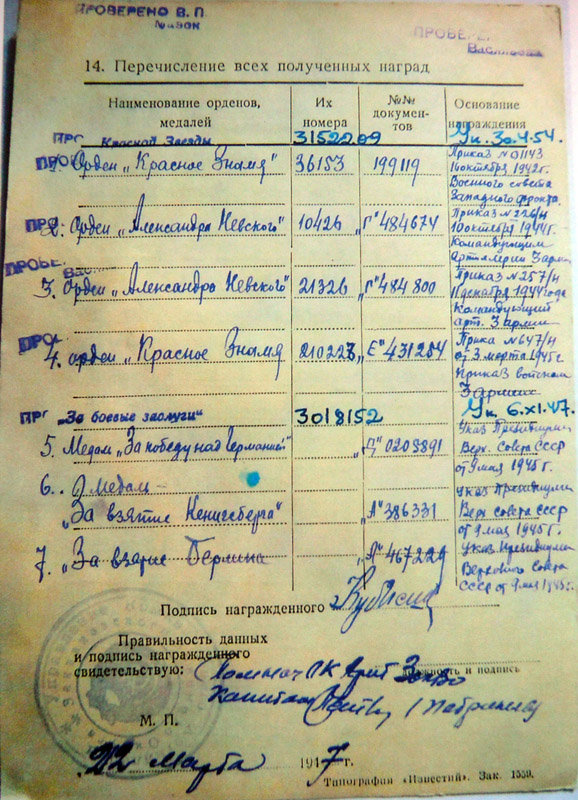 ПРОВЕРЕНО В. П.
ПРОВЕРЕ
14. Перечисление всех полученных наград
Наименование орденов, медалей
Их номера
№№ документов
Основание награждения
ПРО Красной Звезды 3152209 Ук. 30.4.54.
Орден „Красное Знамя" 36153 199119 Приказ № 01143
октября 1942г.
Военного совета
Западного фронта.
2. Орден „Александра Невского" 10426 „Г" 484674 Приказ № 226/н
10 октября 1944г.
Командующим
Артиллерии 3 арми
3. Орден „Александра Невского" 21326 484800 Приказ № 257/н
декабря 1944 года
Командующий
арт. 3 армии
4. орден „Красное Знамя" 210223 „Е" 431254 Прика № 647/н
от 3 марта 1945г
Приказ войскам
3 армии
ПРО „За боевые заслуги" 3018152 Ук. 6.XI.47.
5. Медаль „За победу над Германией" „Д" 0203891 Указ Президиума
Верх. Совета СССР
от 9 мая 1945 г.
6. Медаль – Указ Президиума
„За взятие Кенигсберга" „А" 386331 Верх совета СССР
от 9 мая 1945 г.
7. „За взятие Берлина „Л" 467229 Указ Президиума
Верховного Совета
СССР от 9 мая 1945г.
Подпись награжденного
Правильность данных
и подпись награжденного
свидетельствую:
должность и подпись
Капитан
М. П.
22 Марта 1947 г.
Типография «Известий». Зак. 1559.